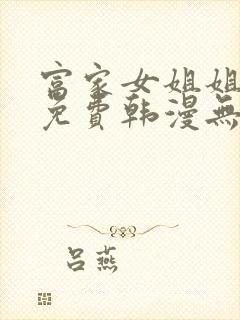 富家女姐姐
免費韩漫無
吕燕